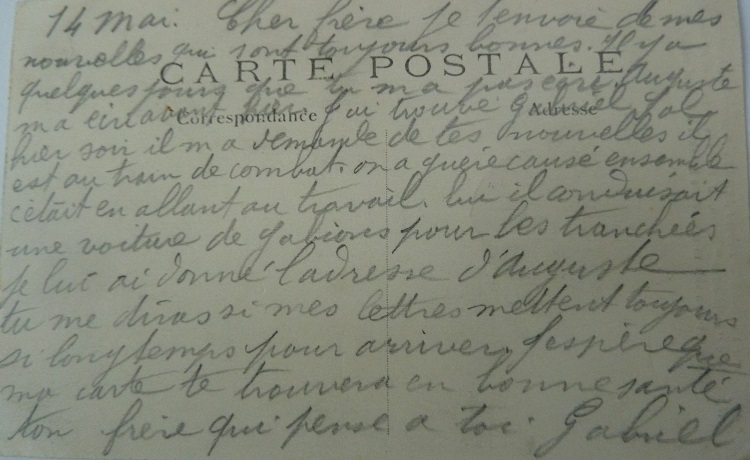 14 Mai. Cher frère je t'envoie de mes
nouvelles qui sont toujours bonnes. Il y a
CARTE POSTALE
quelques jours que tu m a pas ecri. Auguste
m a ecri avant hier. J'ai trouvé Gabriel
Correspondance
Adresse
hier soir il m a demandé de tes nouvelles il
est au train de combat. on a guère causé ensemble
c'était en allant au travail. lui il conduisait
une voiture de gabions pour les tranchées
je lui ai donné l'adresse d'Auguste
tu me diras si mes lettres mettent toujours
si longtemps pour arriver. J'espère que
ma carte te trouvera en bonne santé
ton frère qui pense a toi. Gabriel